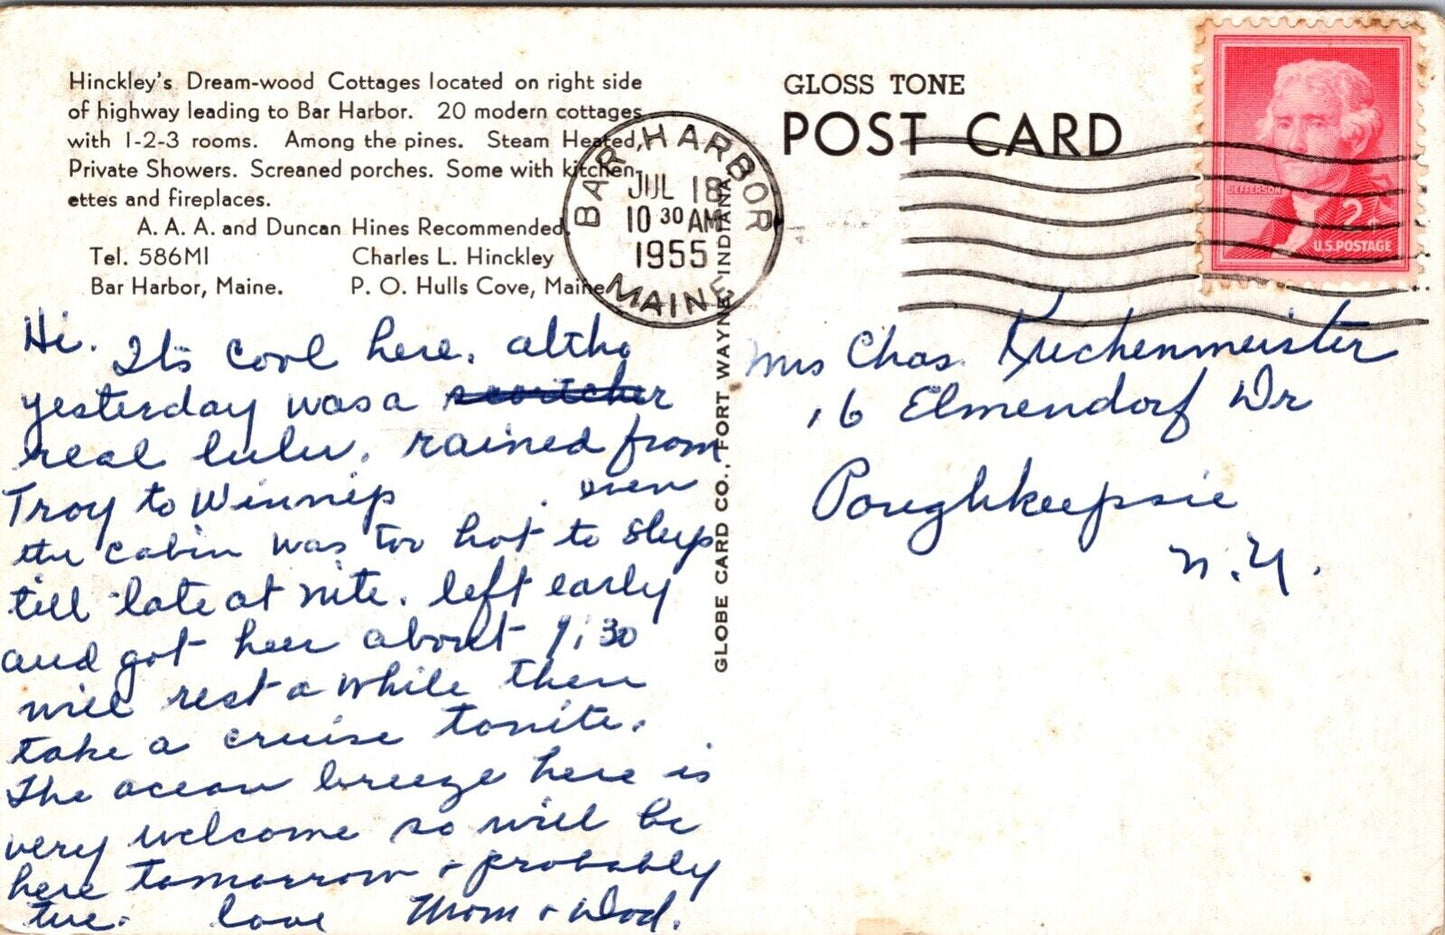 Hinckley's Dream-wood Cottages located on right side
of highway leading to Bar Harbor. 20 modern cottages
with 1-2-3 rooms. Among the pines. Steam Heated,
Private Showers. Screaned porches. Some with kitchen-
ettes and fireplaces.
A. A. A. and Duncan Hines Recommended.
Tel. 586M1 Charles L. Hinckley
Bar Harbor, Maine. P. O. Hulls Cove, Maine
Hi. Its cool here. altho
yesterday was a scorcher
real lulu. rained from
Troy to Winnip . even
the cabin was too hot to sleep
till late at nite. left early
and got here about 1:30
will rest a while then
take a cruise tonite.
The ocean breeze here is
very welcome so will be
here tomorrow + probably
tue. love Mom + Dad.
GLOBE CARD CO., FORT WAYNE, INDIANA
GLOSS TONE
POST CARD
BAR HARBOR
JUL 18
10 30 AM
1955
MAINE
JEFFERSON
2¢
U.S. POSTAGE
Mrs Chas. Kuchenmeister
16 Elmendorf Dr
Poughkeepsie
N.Y.